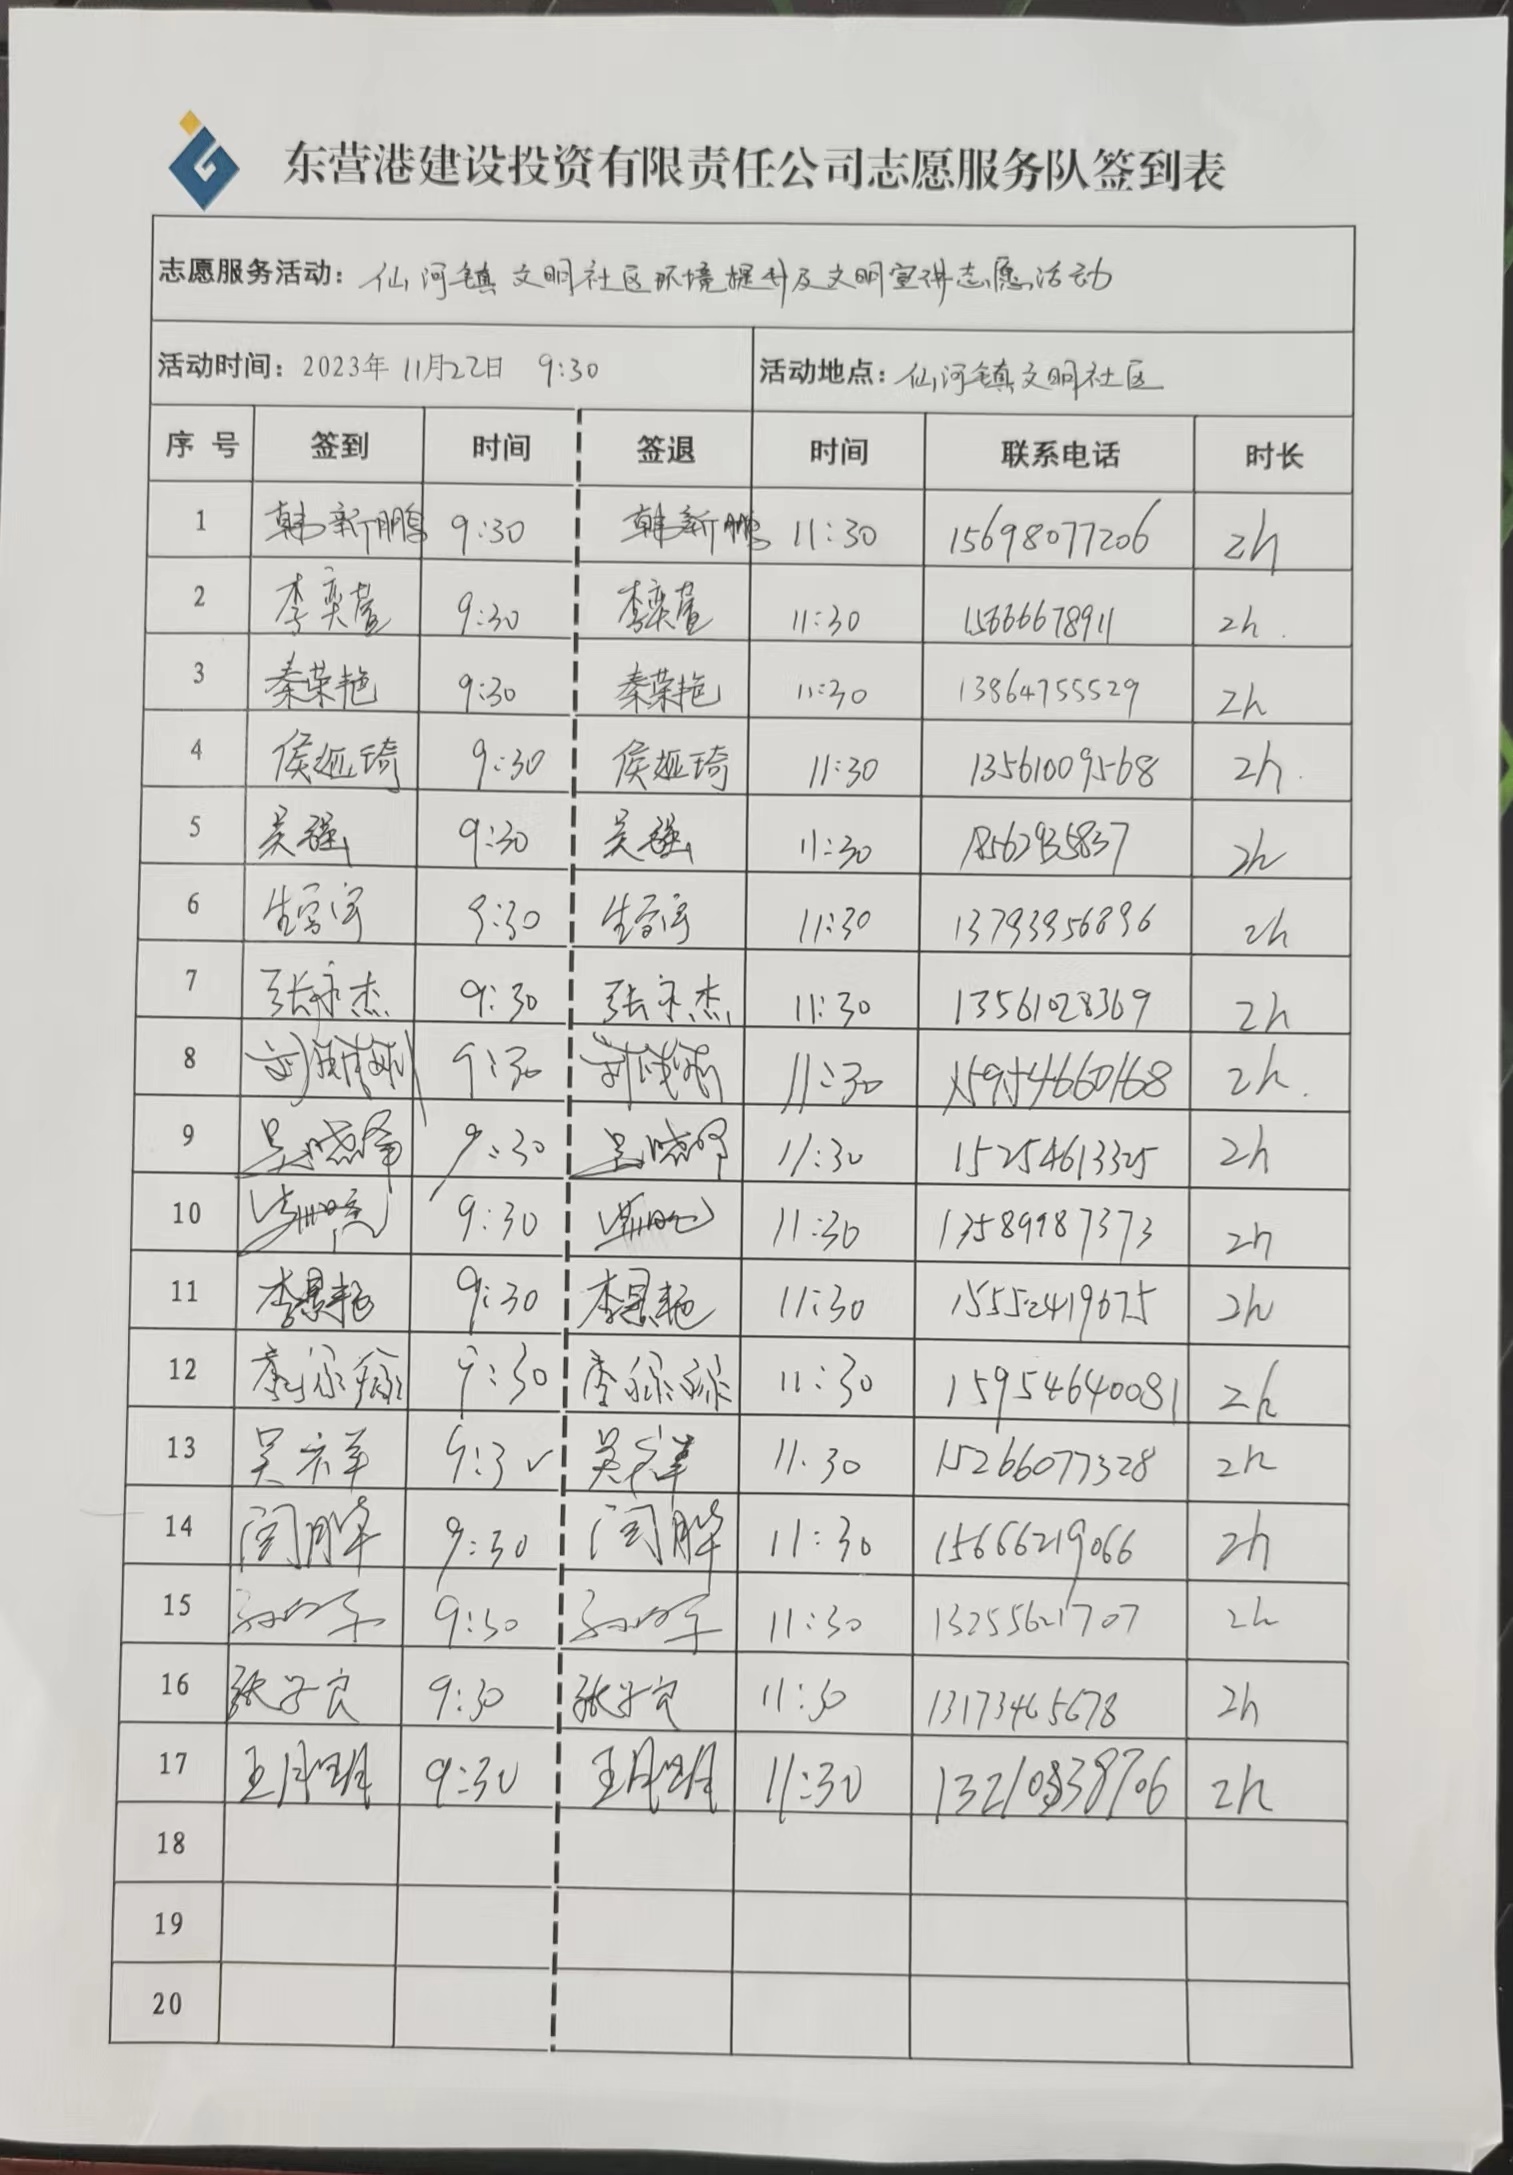 东营港建设投资有限责任公司志愿服务队签到表
志愿服务活动：仙河镇文明社区环境提升及文明宣讲志愿活动
活动时间：2023年11月22日 9:30 活动地点：仙河镇文明社区
序号 签到 时间 签退 时间 联系电话 时长
1 韩新鹏 9:30 韩新鹏 11:30 15698077206 2h
2 李奕萱 9:30 李奕萱 11:30 15666678911 2h.
3 秦荣艳 9:30 秦荣艳 11:30 13864755529 2h
4 侯娅琦 9:30 侯娅琦 11:30 13561009568 2h.
5 吴强 9:30 吴强 11:30 2h
6 9:30 11:30 13793956896 2h
7 张永杰 9:30 张永杰 11:30 13561028369 2h
8 9:30 11:30 15954660168 2h.
9 9:30 11:30 15254613325 2h
10 9:30 11:30 13589987373 2h
11 李景艳 9:30 李景艳 11:30 15552419675 2h
12 9:30 11:30 15954640081 2h
13 9:30 11:30 15266077328 2h
14 闫月华 9:30 闫月华 11:30 15666219066 2h
15 9:30 11:30 13255621707 2h
16 张子良 9:30 张子良 11:30 13173465678 2h
17 王月明 9:30 王月明 11:30 2h
18
19
20